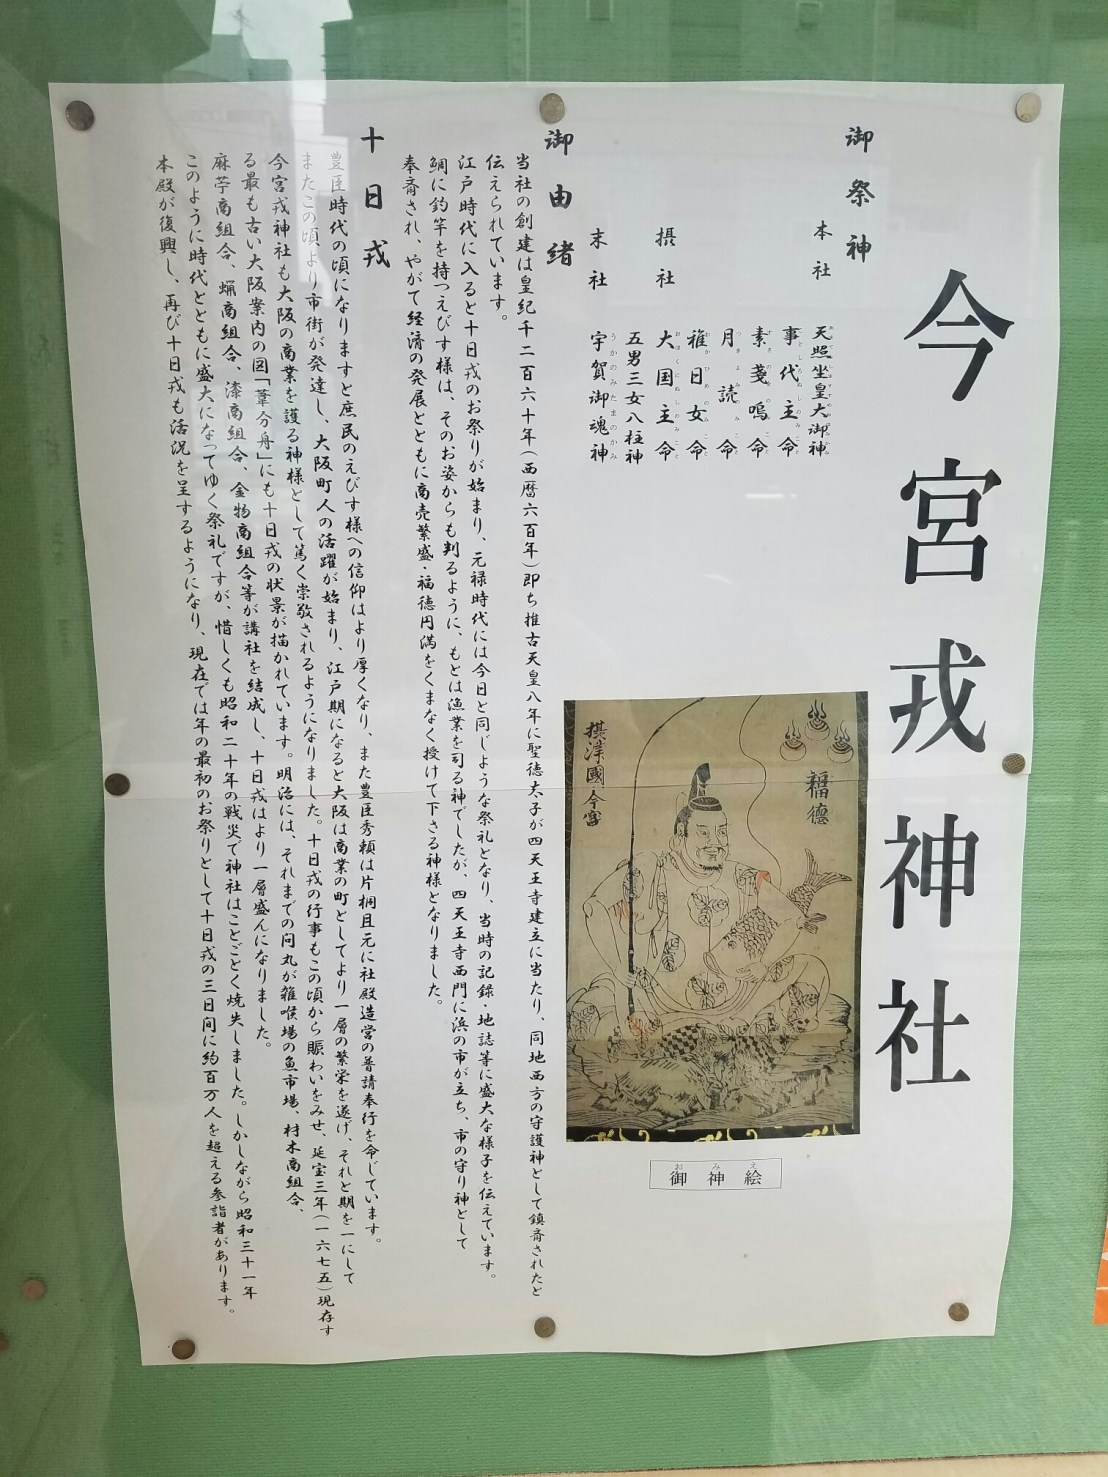 今宮戎神社
御祭神
本社
天照坐皇大御神
事代主命
素戔嗚命
月読命
稚日女命
摂社
大国主命
五男三女八柱神
末社
宇賀御魂神
福徳
摂津國今宮
御神絵
おみえ
御由緒
当社の創建は皇紀千二百六十年(西暦六百年)即ち推古天皇八年に聖徳太子が四天王寺建立に当たり、同地西方の守護神として鎮斎されたと
伝えられています。
江戸時代に入ると十日戎のお祭りが始まり、元禄時代には今日と同じような祭礼となり、当時の記録・地誌等に盛大な様子を伝えています。
鯛に釣竿を持つえびす様は、そのお姿からも判るように、もとは漁業を司る神でしたが、四天王寺西門に浜の市が立ち、市の守り神として
奉斎され、やがて経済の発展とともに商売繁盛・福徳円満をくまなく授けて下さる神様となりました。
十日戎
豊臣時代の頃になりますと庶民のえびす様への信仰はより厚くなり、また豊臣秀頼は片桐且元に社殿造営の普請奉行を命じています。
またこの頃より市街が発達し、大阪町人の活躍が始まり、江戸期になると大阪は商業の町としてより一層の繁栄を遂げ、それと期を一にして
今宮戎神社も大阪の商業を護る神様として篤く崇敬されるようになりました。十日戎の行事もこの頃から賑わいをみせ、延宝三年(一六七五)現存す
る最も古い大阪案内の図「葦分舟」にも十日戎の状景が描かれています。明治には、それまでの問丸が雑喉場の魚市場、材木商組合、
麻苧商組合、蝋商組合、漆商組合、金物商組合等が講社を結成し、十日戎はより一層盛んになりました。
このように時代とともに盛大になってゆく祭礼ですが、惜しくも昭和二十年の戦災で神社はことごとく焼失しました。しかしながら昭和三十一年
本殿が復興し、再び十日戎も活況を呈するようになり、現在では年の最初のお祭りとして十日戎の三日間に約百万人を超える参詣者があります。